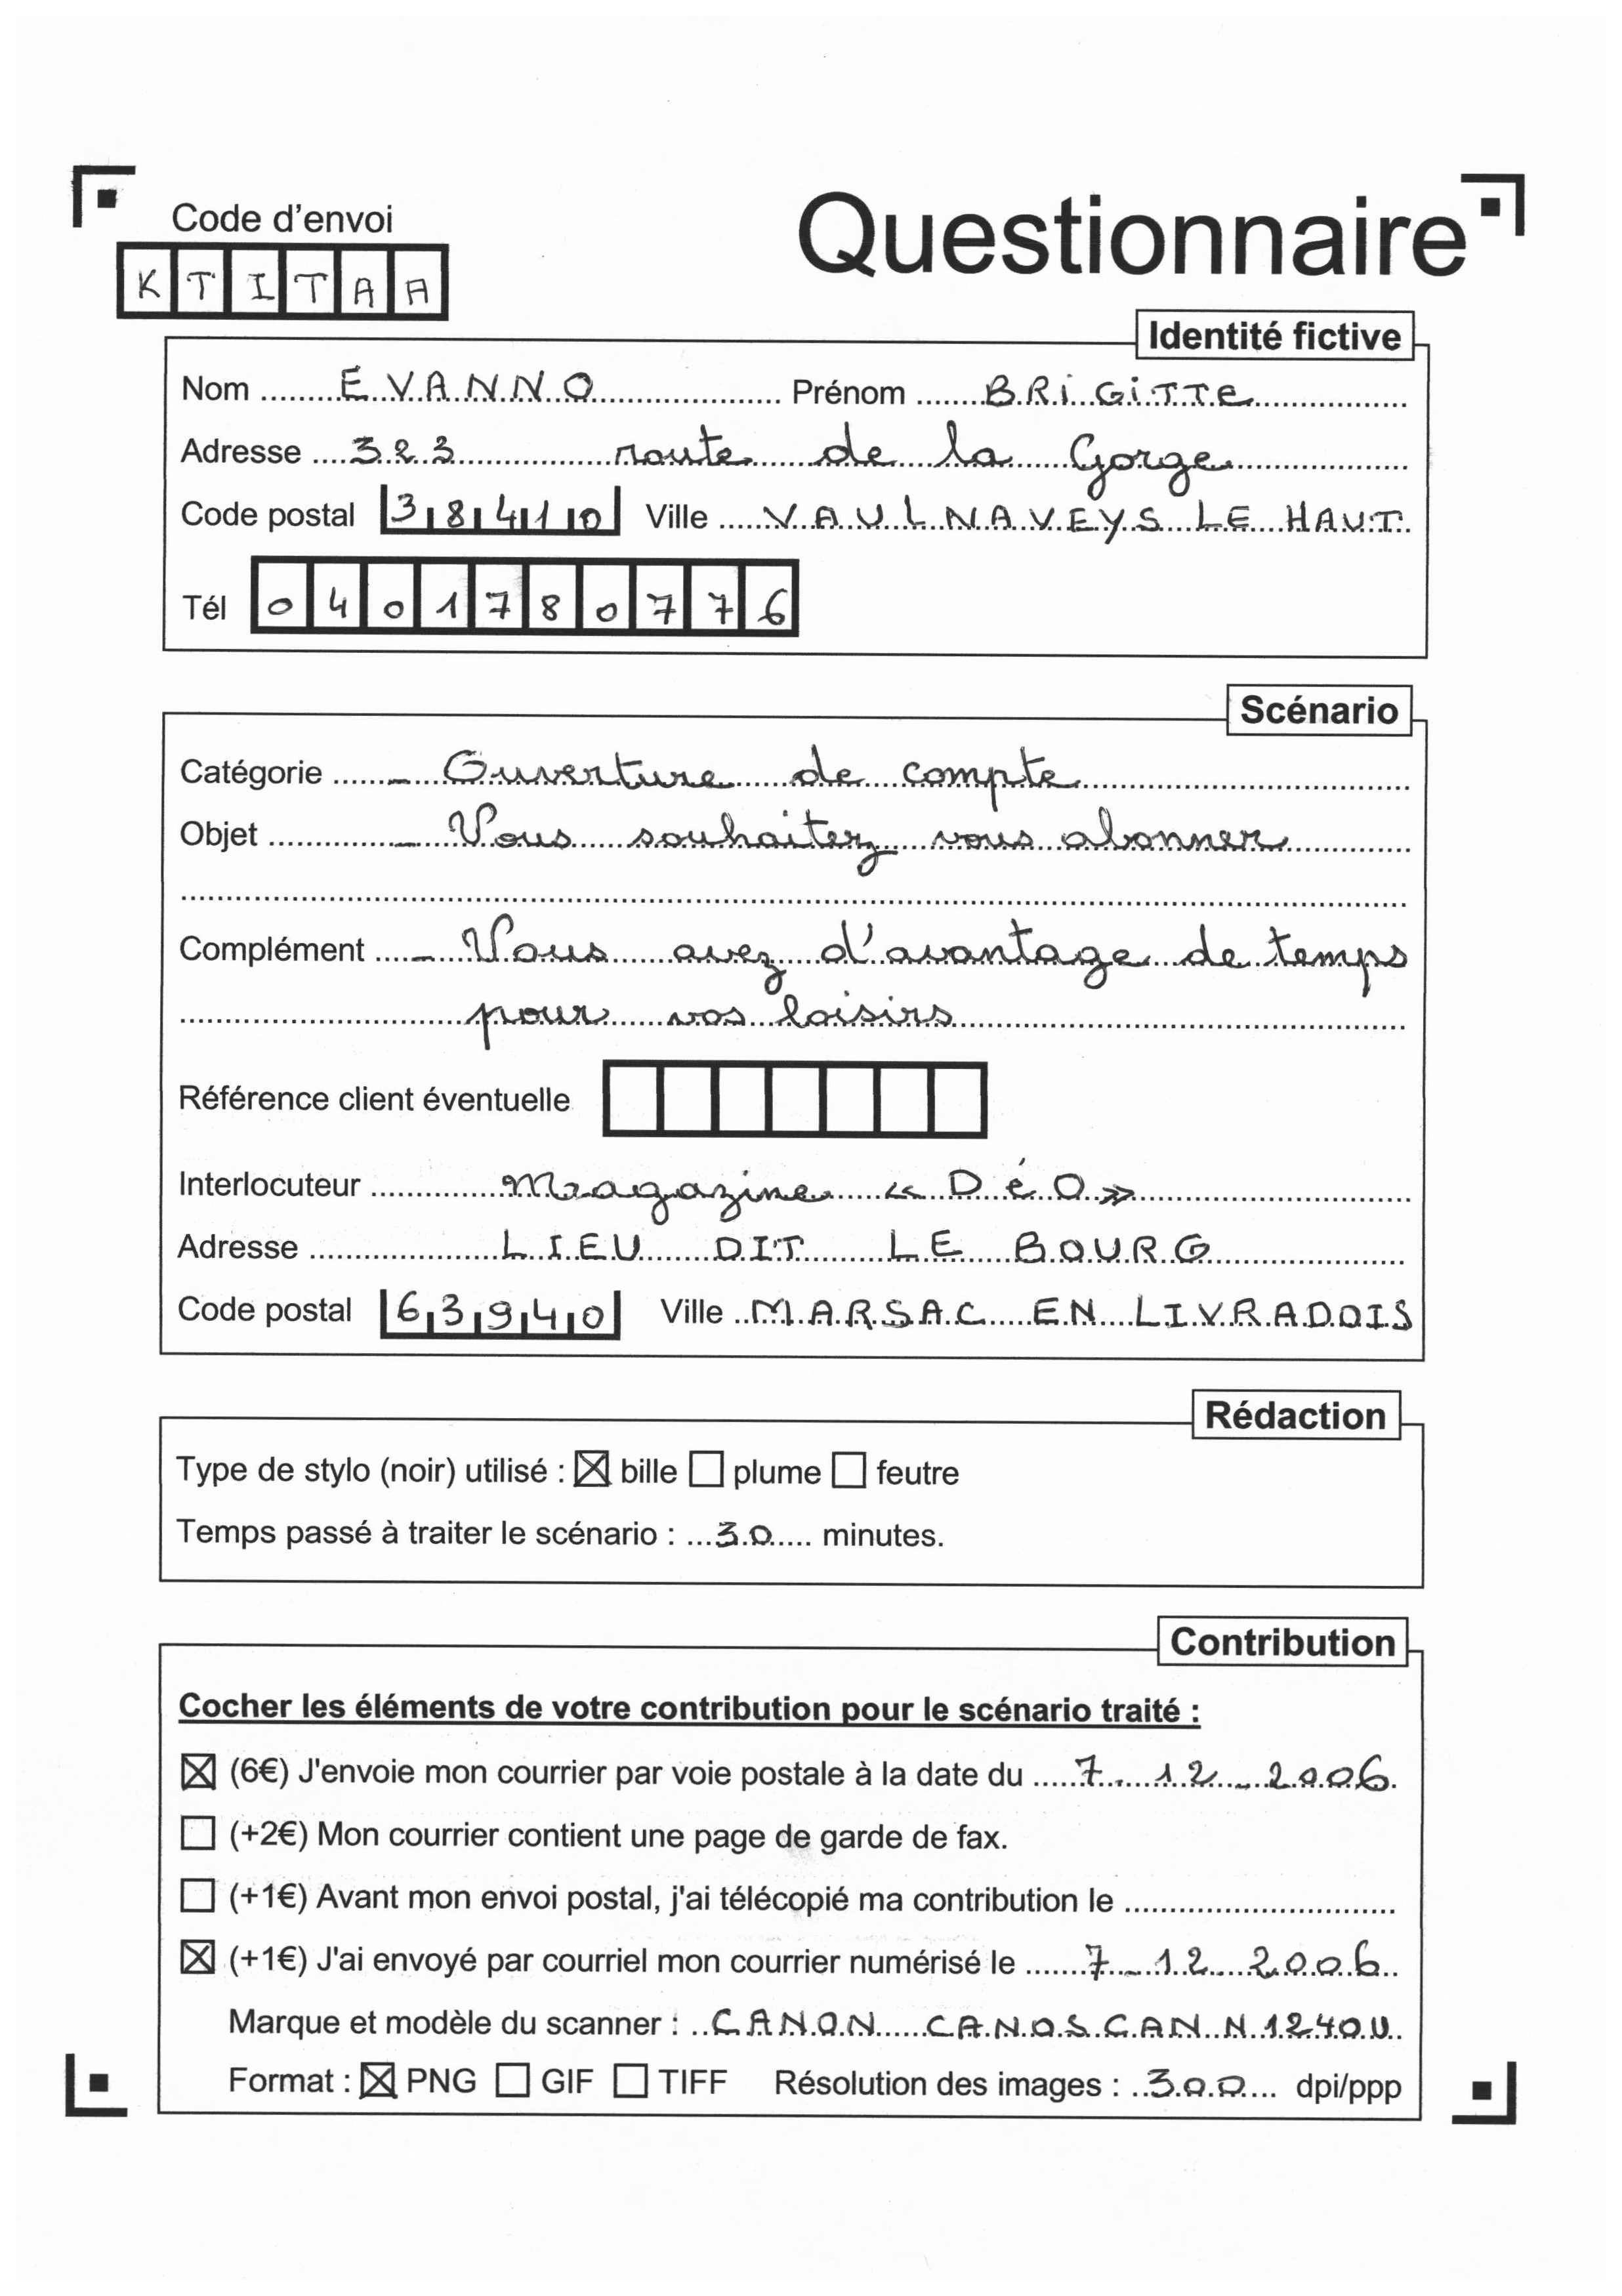 Code d'envoi
Questionnaire
KTITAA
Identité fictive
Nom ......... EVANNO ......... Prénom ......... BRIGITTE .........
Adresse .... 323 route de la Gorge .........
Code postal 38410 Ville ...... VAULNAVEYS LE HAUT
Tél 0401780776
Scénario
Catégorie ....... - Ouverture de compte .........
Objet ............ - Vous souhaitez vous abonner .........
Complément .... - Vous avez d'avantage de temps
pour vos loisirs
Référence client éventuelle
Interlocuteur ......... Magazine « DéO » .........
Adresse ......... LIEU DIT LE BOURG .........
Code postal 63940 Ville .. MARSAC EN LIVRADOIS
Rédaction
Type de stylo (noir) utilisé : ☒ bille ☐ plume ☐ feutre
Temps passé à traiter le scénario : ... 30 ..... minutes.
Contribution
Cocher les éléments de votre contribution pour le scénario traité :
☒ (6€) J'envoie mon courrier par voie postale à la date du ..... 7 - 12 - 2006.
☐ (+2€) Mon courrier contient une page de garde de fax.
☐ (+1€) Avant mon envoi postal, j'ai télécopié ma contribution le ...........................
☒ (+1€) J'ai envoyé par courriel mon courrier numérisé le ...... 7 - 12 - 2006 ..
Marque et modèle du scanner : .. CANON CANOSCAN N1240U ..
Format : ☒ PNG ☐ GIF ☐ TIFF Résolution des images : .. 300 .... dpi/ppp